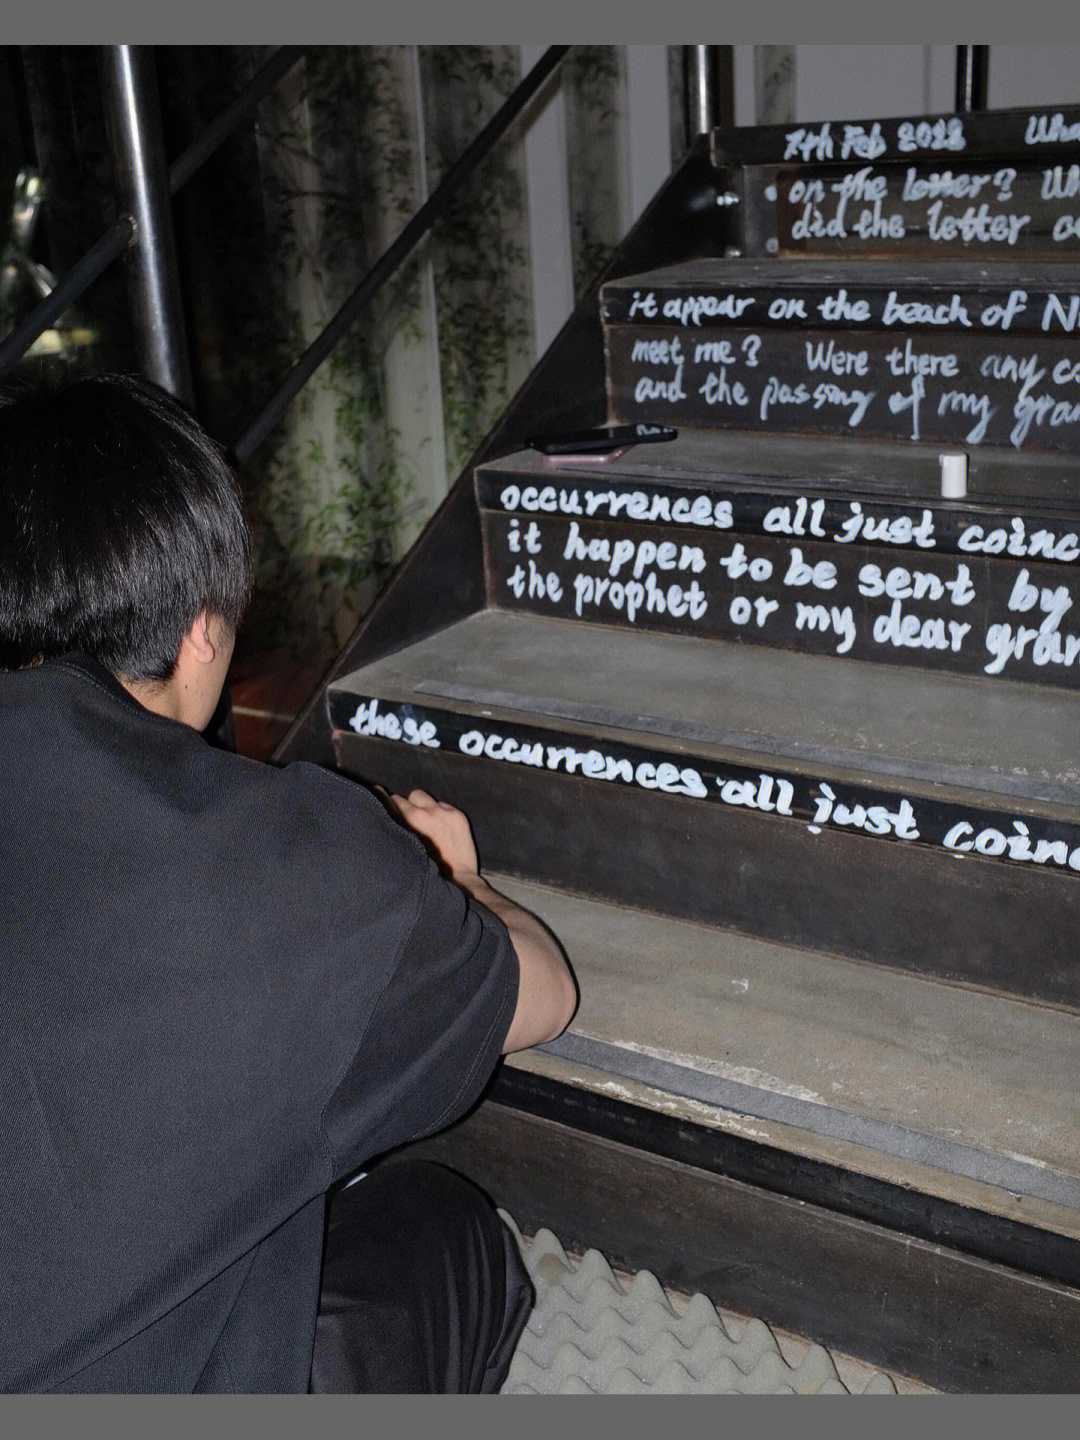 7th Feb 2022
on the letter?
did the letter
it appear on the beach of
meet me? Were there any
and the passing of my
occurrences all just
it happen to be sent by
the prophet or my dear
these occurrences all just